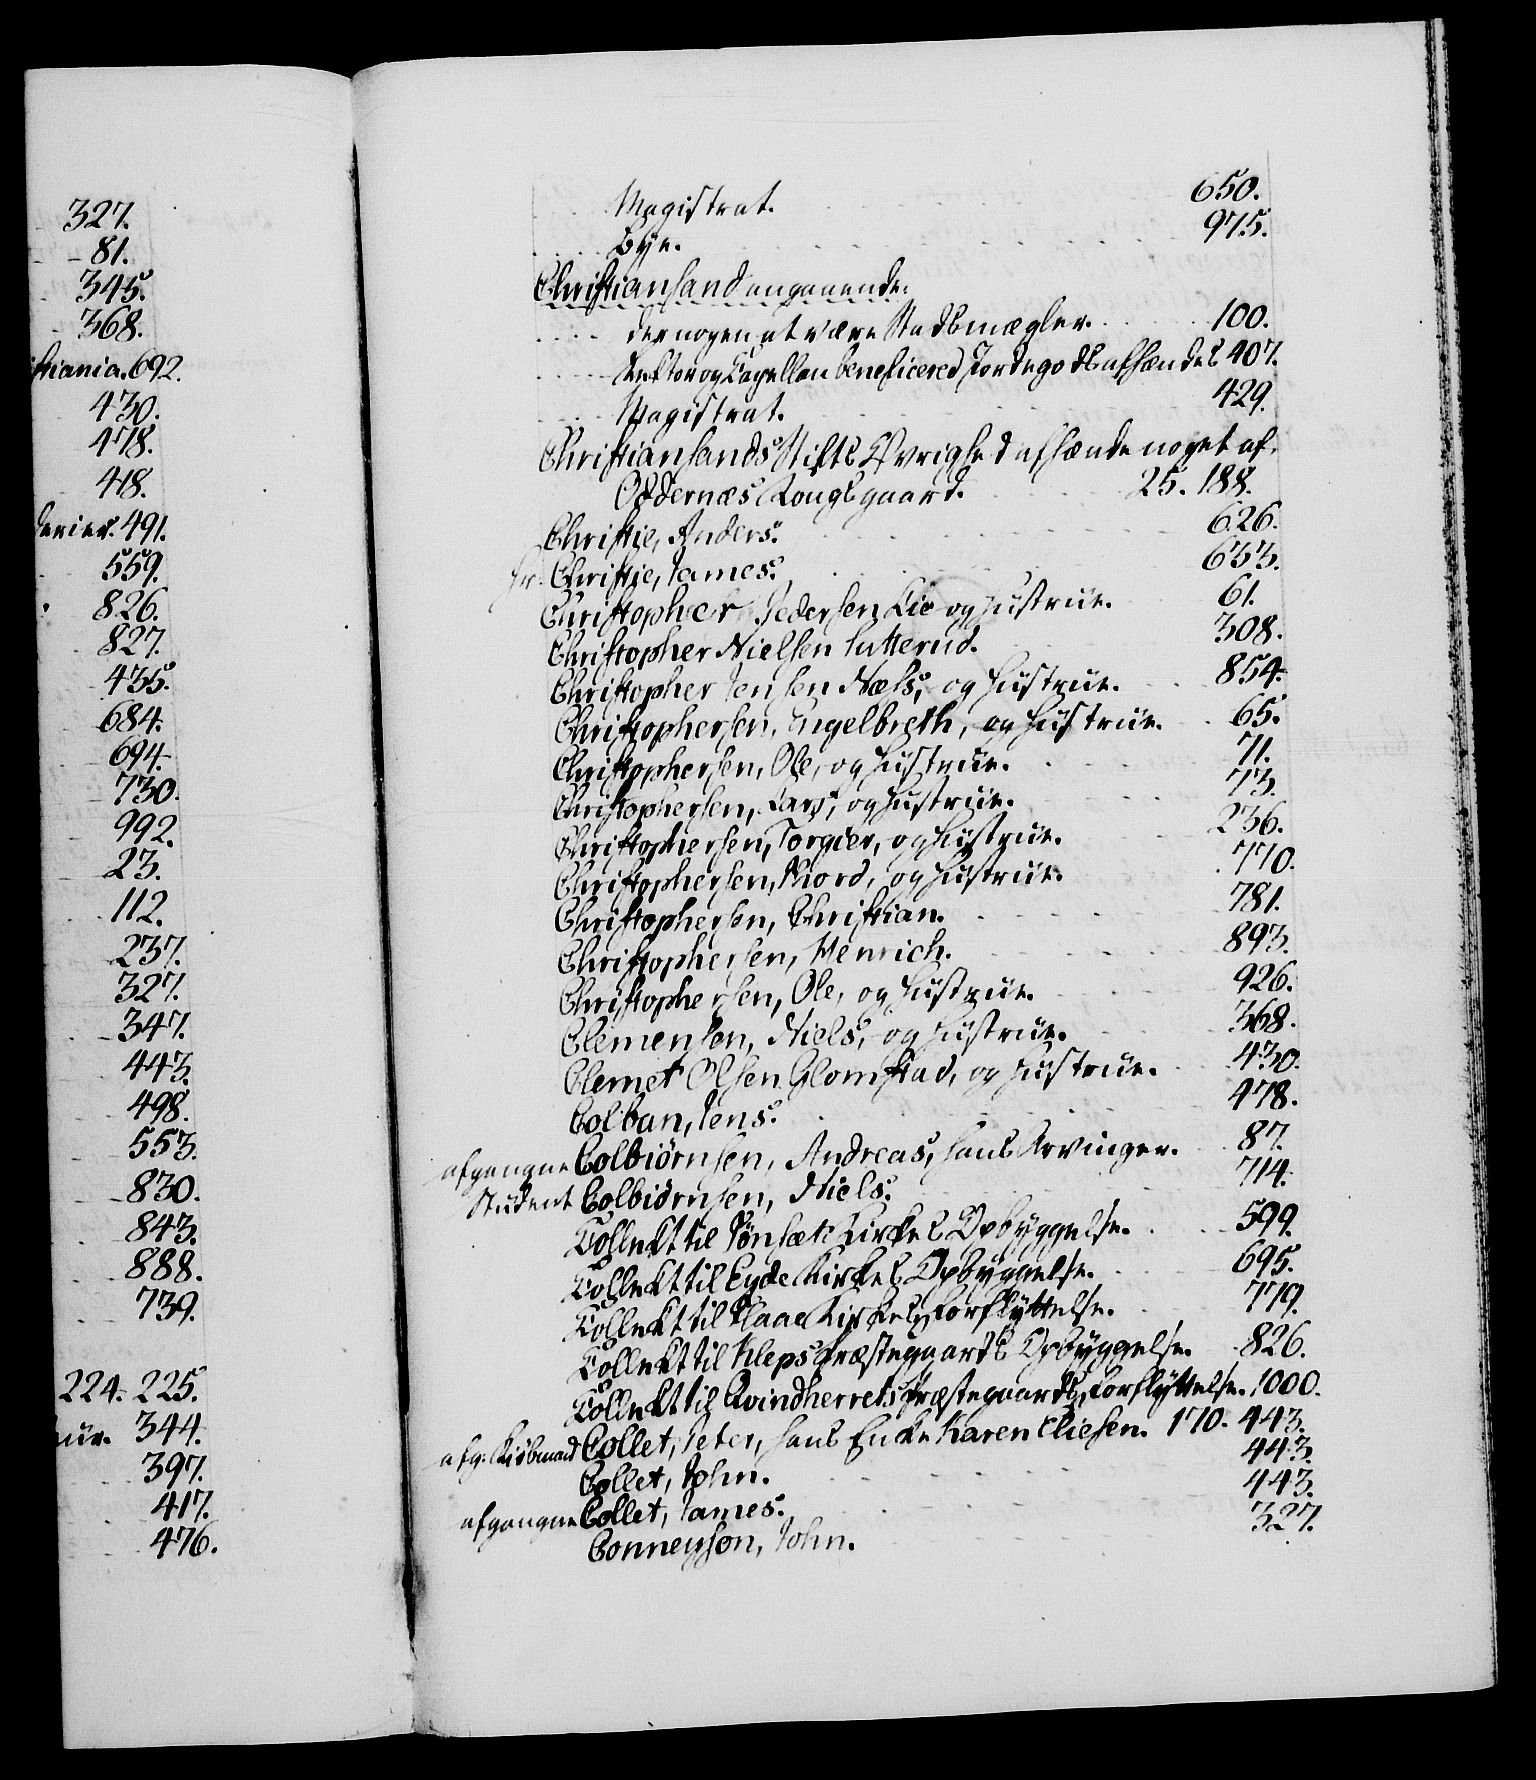 327.
81.
345.
368.
stiania. 692.
430.
478.
418.
derier. 491.
559.
826.
827.
435.
684.
694.
730.
992.
23.
112.
237.
327.
347.
443.
498.
553.
830.
843.
888.
739.
224. 225.
344.
397.
417.
476.
Magistrat. 650.
Bye. 975.
Christiansand angaaende.
der nogen at være Stadsmægler. 100.
Rector og Capellan beneficered Jordegods afhændes 407.
Magistrat. 429.
Christiansands Stifts Øvrighed afhænde noget af
Oddernæs Kongsgaard. 25. 188.
Christie, Anders. 626.
hr. Christie, James. 633.
Christopher Pedersen Lie og Hustrue. 61.
Christopher Nielsen Sutterud. 308.
Christopher Jensen Næss, og Hustrue. 854.
Christophersen, Engelbreth, og Hustrue. 65.
Christophersen, Ole, og Hustrue. 71.
Christophersen, Lars, og Hustrue. 73.
Christophersen, Torgier, og Hustrue. 236.
Christophersen, Thord, og Hustrue. 770.
Christophersen, Christian. 781.
Christophersen, Henrich. 893.
Christophersen, Ole, og Hustrue. 926.
Clemensen, Niels, og Hustrue. 368.
Clemet Olsen Glomstad, og Hustrue. 430.
Colban, Jens. 478.
afgangne Colbiørnsen, Andreas, hans Arvinger. 87.
Student Colbiørnsen, Niels. 714.
Collekt til Kirkes Opbyggelse. 599.
Collekt til Eyde Kirkes Opbyggelse. 695.
Collekt til Kirkes Forflyttelse. 779.
Collekt til Kleps Præstegaards Opbyggelse. 826.
Collekt til Qvindherrets Præstegaards Forflyttelse. 1000.
afg: Kiøbmand Collet, Peter, hans Enke Karen Eliesen. 170. 443.
Collet, John. 443.
afgangne Collet, James. 443.
Conneyson, John. 327.